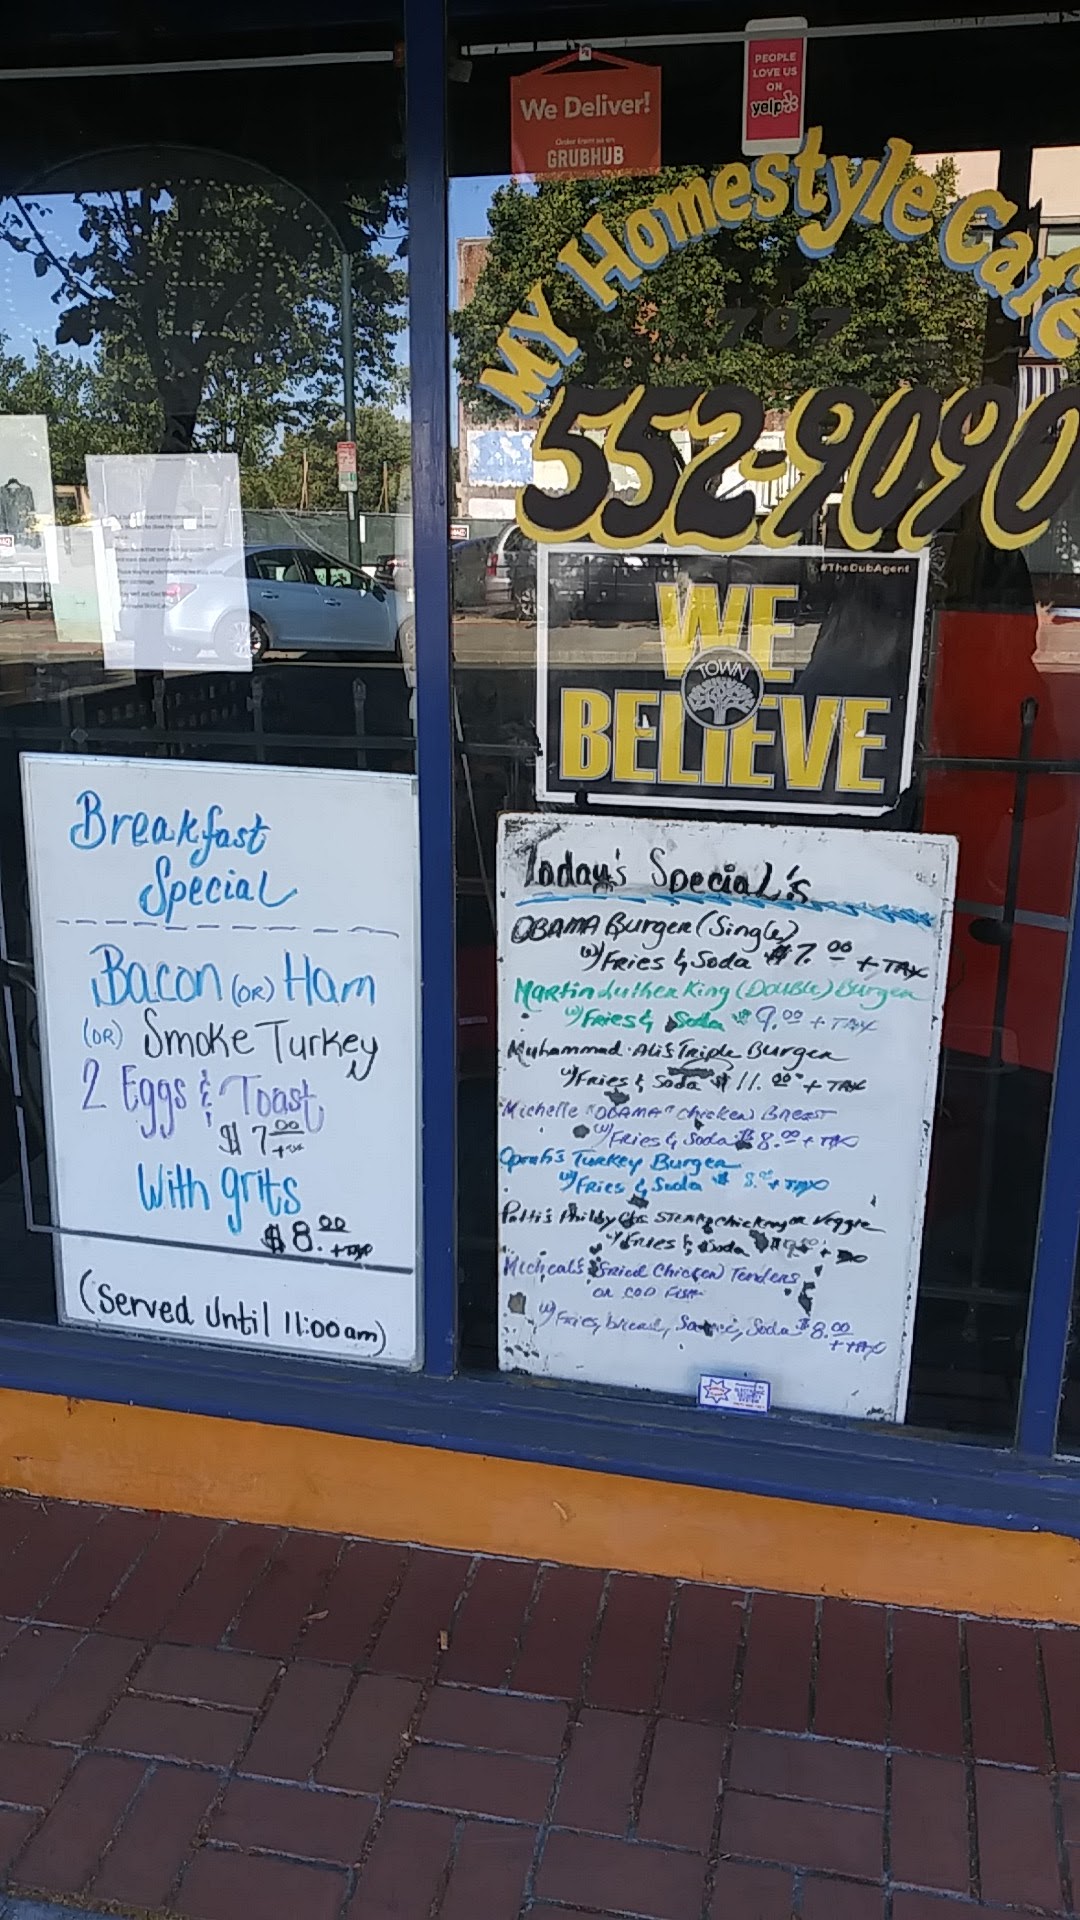 PEOPLE
LOVE US
ON
yelp
We Deliver!
GRUBHUB
MY Homestyle Cafe
707
552-9090
#TheDubAgent
WE
TOWN
BELIEVE
Breakfast
Special
Bacon (OR) Ham
(OR) Smoke Turkey
2 Eggs & Toast
$7.00
+tax
With grits
$8.00
+tax
(Served Until 11:00am)
Today's Special's
OBAMA Burger (Single)
w/Fries & Soda $7.00 + TAX
Martin Luther King (Double) Burger
w/Fries & Soda $9.00 + TAX
Muhammad Ali's Triple Burger
w/Fries & Soda $11.00 + TAX
Michelle "OBAMA" Chicken BREAST
w/Fries & Soda $8.00 + TAX
Oprah's Turkey Burger
w/Fries & Soda $8.00 + TAX
Patti's Philly Chicken or Veggie
w/Fries & Soda
Micheal's Fried Chicken Tenders
OR COD Fish
w/Fries, bread, Soda $8.00
+TAX